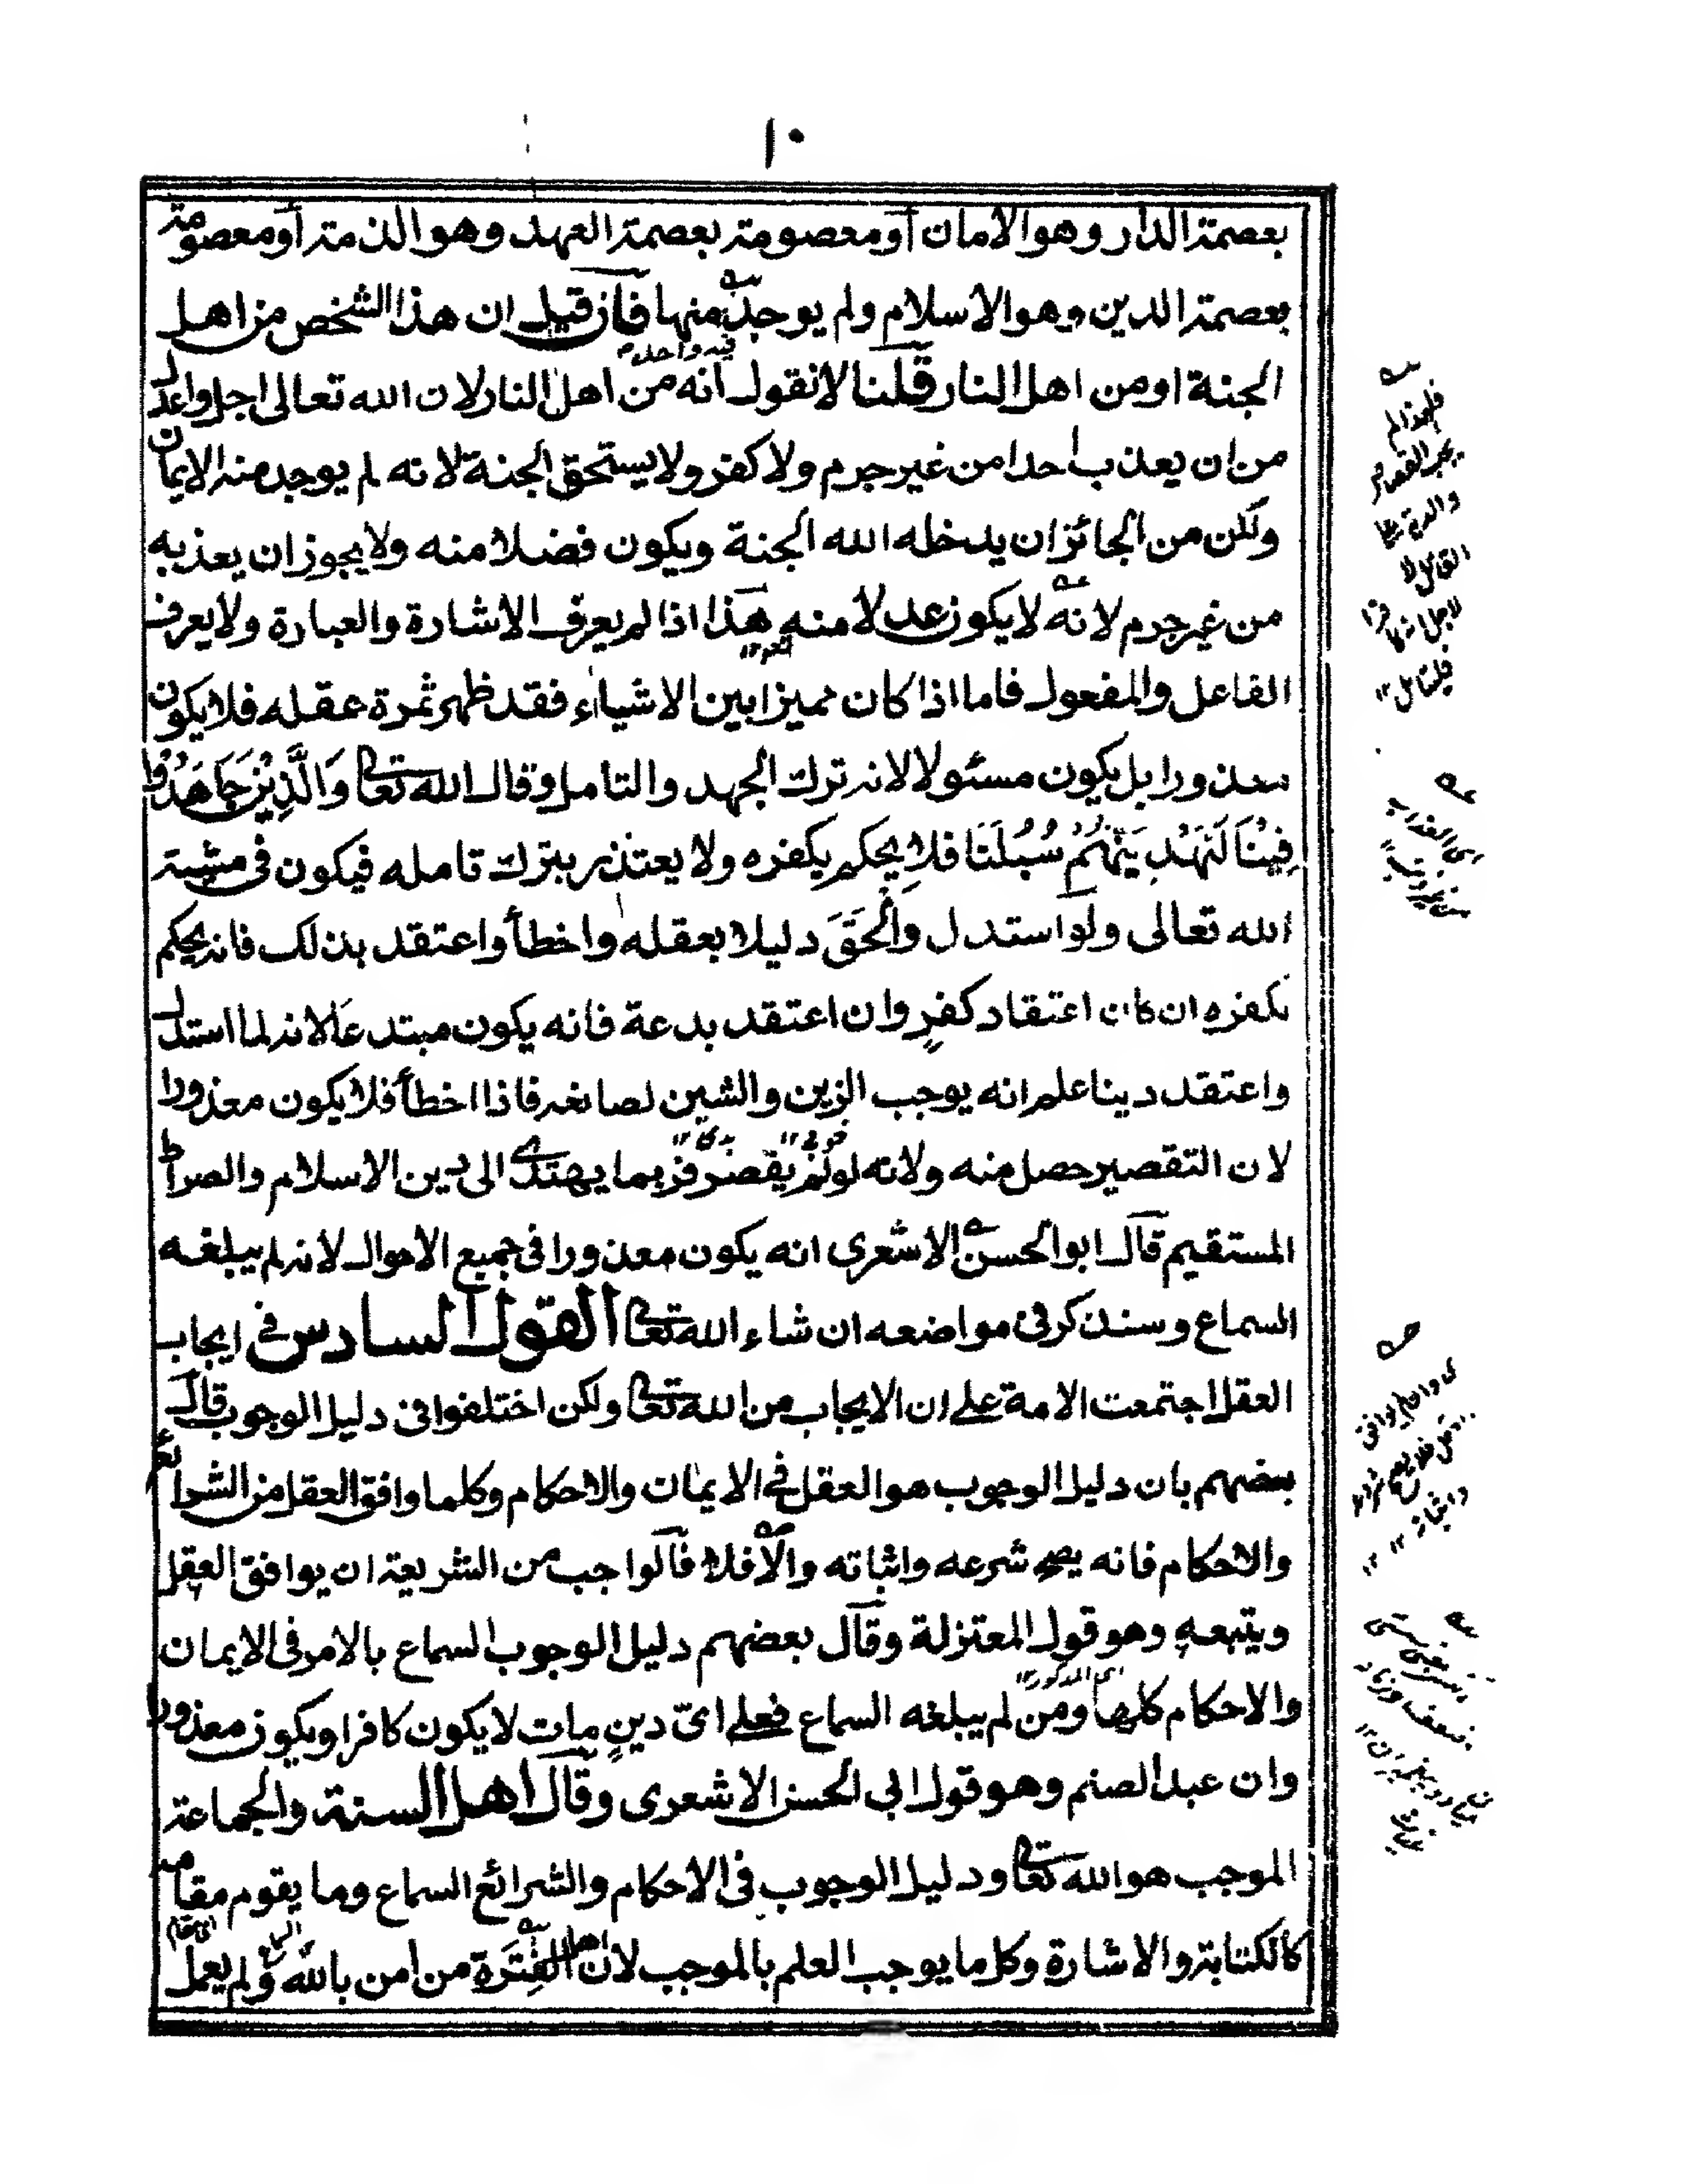 ١٠
بعصمة الدار وهو الامان أو معصومة بعصمة العهد وهو الذمة أو معصومة
بعصمة الدين وهو الاسلام ولم يوجد منها فان قيل ان هذا الشخص من اهل
فيه واحد
الجنة او من اهل النار قلنا لا نقول انه من اهل النار لان الله تعالى اجل واعدل
من ان يعذب احدا من غير جرم ولا كفر ولا يستحق الجنة لانه لم يوجد منه الايمان
ولكن من الجائز ان يدخله الله الجنة ويكون فضلا منه ولا يجوز ان يعذبه
من غير جرم لانه لا يكون عدلا منه هذا اذا لم يعرف الاشارة والعبارة ولا يعرف
الفاعل والمفعول فاما اذا كان مميزا بين الاشياء فقد ظهر ثمرة عقله فلا يكون
معذورا بل يكون مسئولا لانه ترك الجهد والتامل وقال الله تعالى وَالَّذِيْنَ جَاهَدُوْا
فِيْنَا لَنَهْدِيَنَّهُمْ سُبُلَنَا فلا يحكم بكفره ولا يعتذر بترك تامله فيكون فى مشية
الله تعالى ولو استدل والحق دليلا بعقله واخطأ واعتقد بذلك فانه يحكم
بكفره ان كان اعتقاد كفرٍ وان اعتقد بدعة فانه يكون مبتدعا لانه لما استدل
واعتقد دينا علم انه يوجب الزين والشين لصانعه فاذا اخطأ فلا يكون معذورا
لان التقصير حصل منه ولانه لو لم يقصر فربما يهتدى الى دين الاسلام والصراط
المستقيم قال ابو الحسن الاشعرى انه يكون معذورا فى جميع الاحوال لانه لم يبلغه
السماع وسنذكر فى مواضعه ان شاء الله تعالى القول السادس فى ايجاب
العقل اجتمعت الامة على ان الايجاب من الله تعالى ولكن اختلفوا فى دليل الوجوب قال
بعضهم بان دليل الوجوب هو العقل فى الايمان والاحكام وكلما وافق العقل من الشرائع
والاحكام فانه يصح شرعه واثباته والا فلا فالواجب من الشريعة ان يوافق العقل
ويتبعه وهو قول المعتزلة وقال بعضهم دليل الوجوب السماع بالامر فى الايمان
اى المذكورة
والاحكام كلها ومن لم يبلغه السماع فعلى اىّ دينٍ مات لا يكون كافرا ويكون معذورا
وان عبد الصنم وهو قول ابى الحسن الاشعرى وقال اهل السنة والجماعة
الموجب هو الله تعالى ودليل الوجوب فى الاحكام والشرائع السماع وما يقوم مقامه
كالكتابة والاشارة وكل ما يوجب العلم بالموجب لان اهل الفترة من امن بالله ولم يعمل